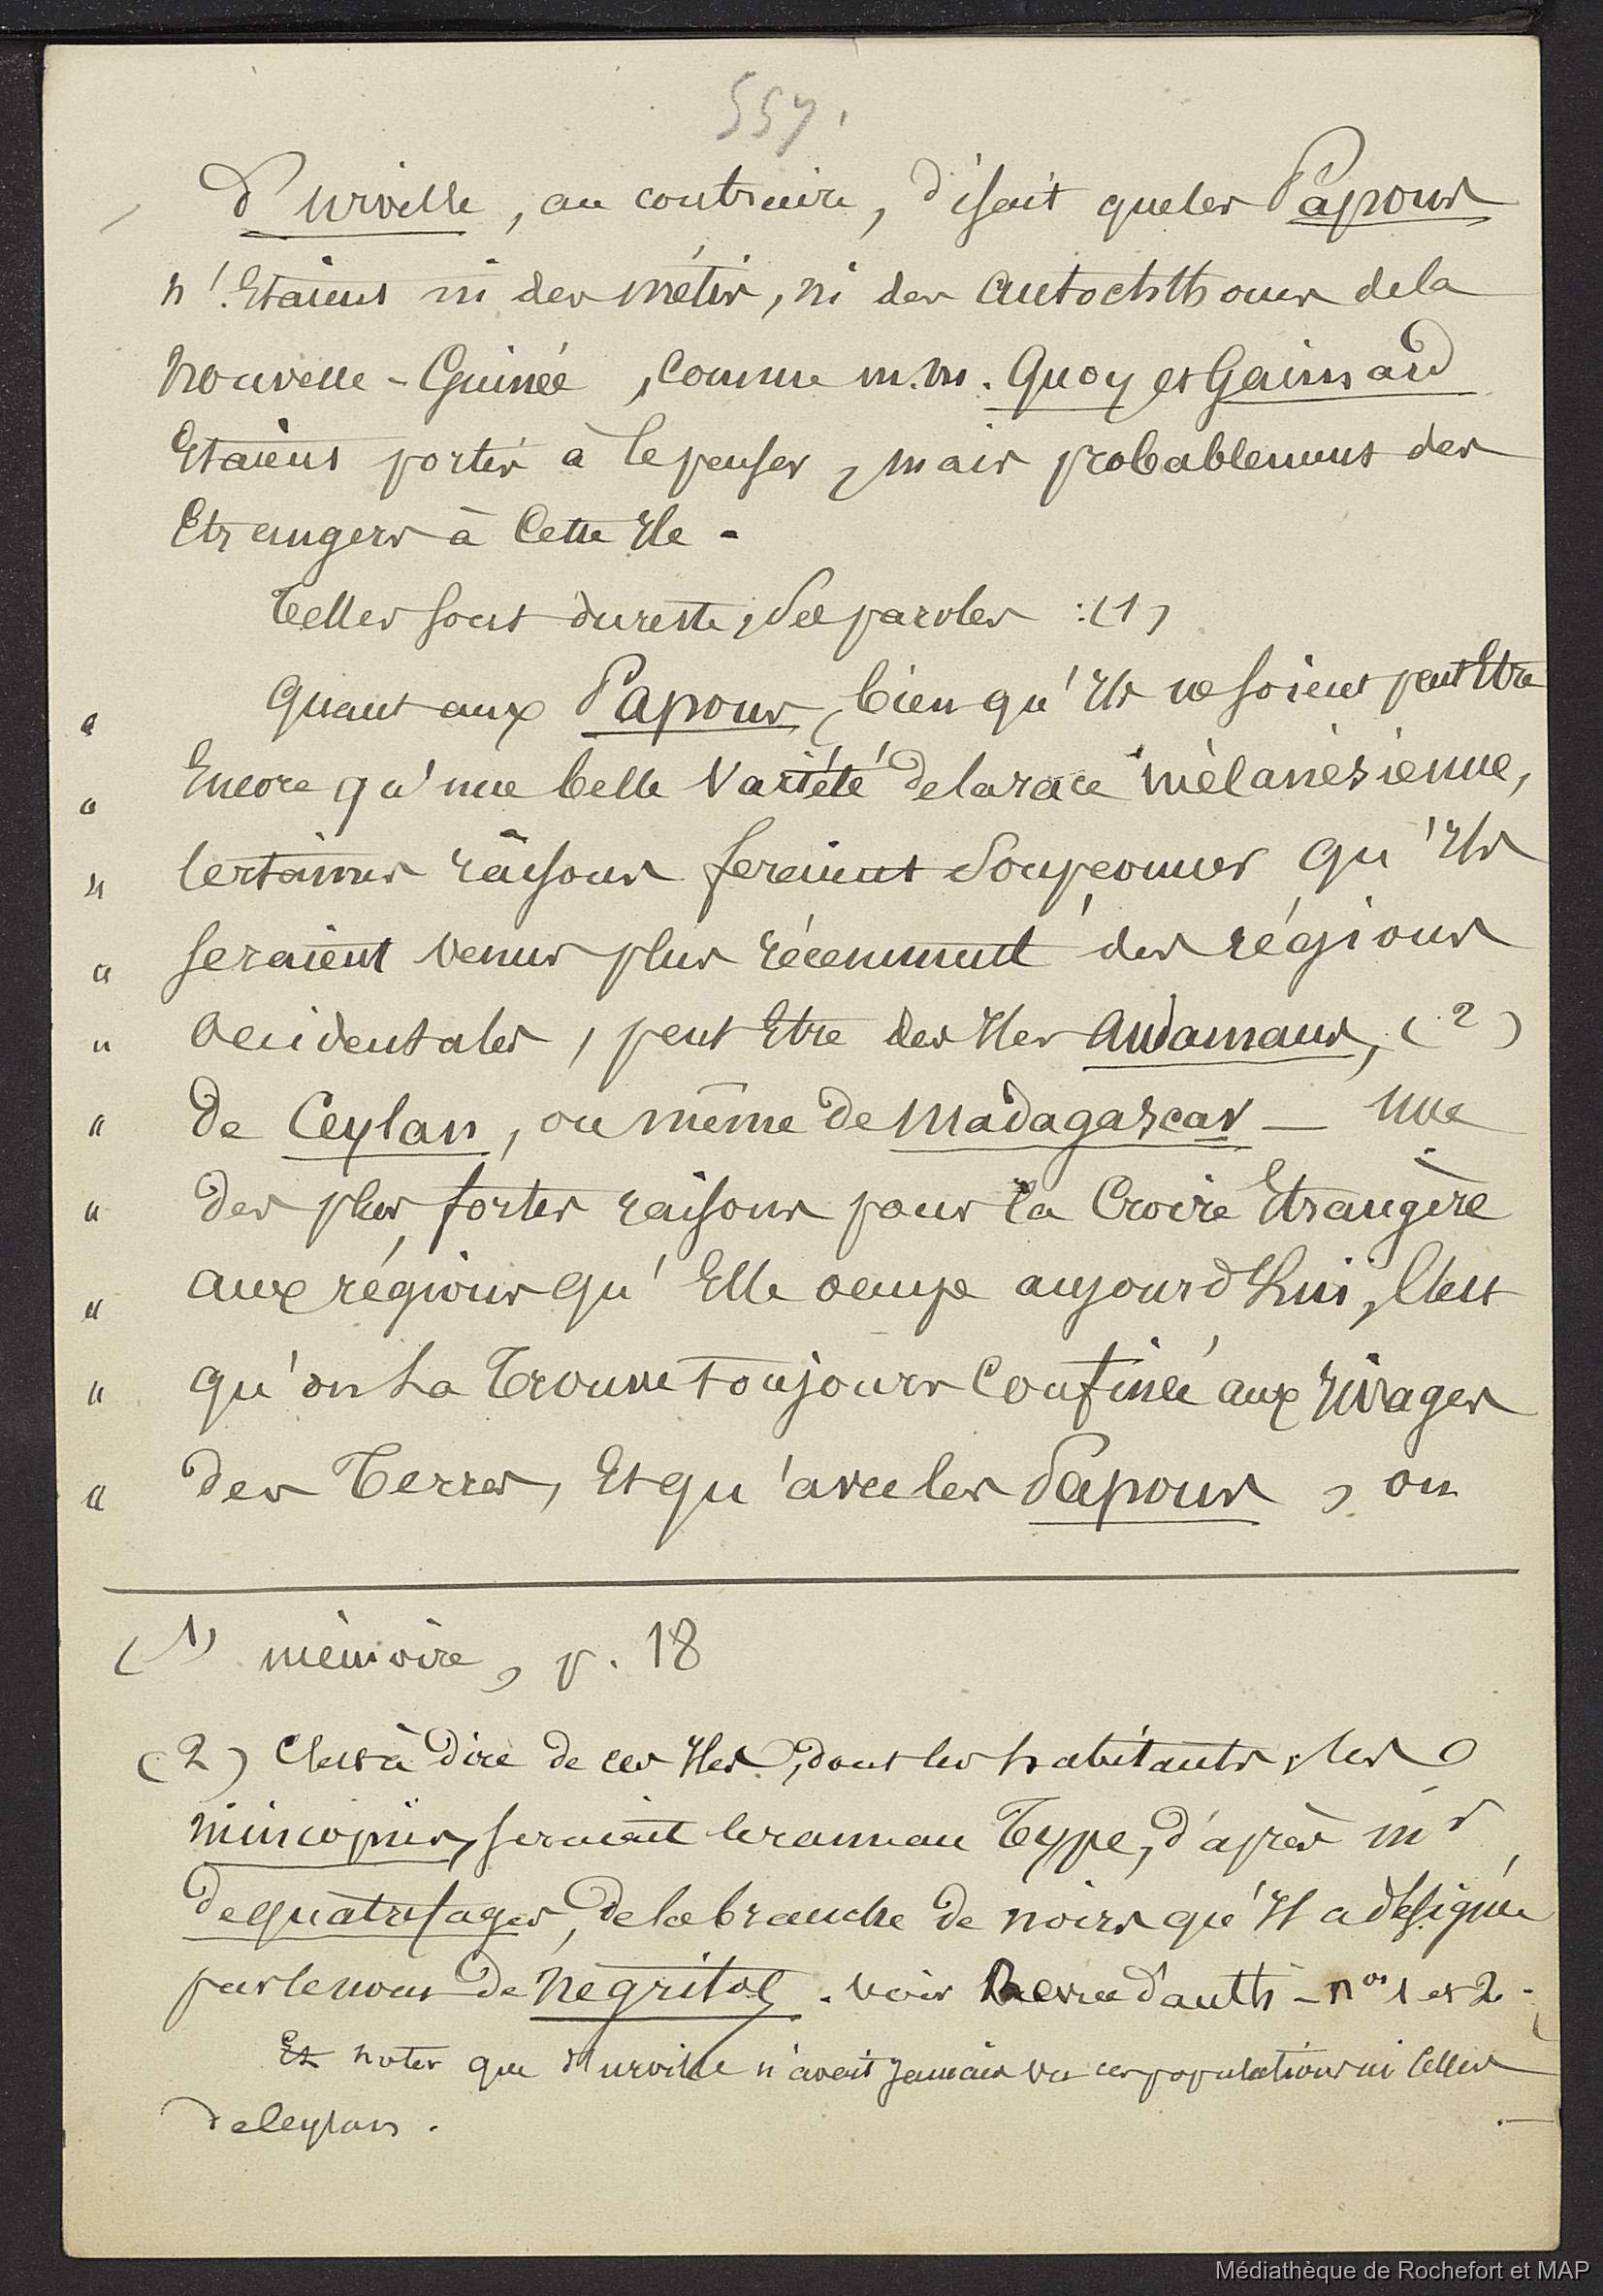 557.
d'Urville, au contraire, disait que les Papous
n'Etaient ni des métis, ni des autochthones de la
Nouvelle-Guinée, comme m.m. Quoy et Gaimard
Etaient portés à le penser, mais probablement des
Etrangers à Cette Ile -
Telles sont du reste, Ses paroles : (1)
" Quant aux Papous, bien qu'Ils ne soient peut Etre
" Encore qu'une belle Variété de la race mélanésienne,
" Certaines raisons feraient Soupçonner qu'Ils
" seraient venus plus récemment des régions
" occidentales, peut Etre des Iles Andamans, (2)
" de Ceylan, ou même de Madagascar — Une
" des plus fortes raisons pour la Croire Etrangère
" aux régions qu'Elle occupe aujourd'hui, C'est
" qu'on La Trouve toujours Confinée aux rivages
" des Terres, Et qu'avec les Papous, on
(1) mémoire, p. 18
(2) C'est à dire de ces Iles, dont les habitants, les
mincopies, seraient le rameau Type, d'après mr
de quatrefages, de la branche de noirs qu'Il a désignée
par le nom de Négritos. voir Revue d'anth - nos 1 et 2 -
Et noter que d'Urville n'avait jamais vu ces populations ni Celles
de Ceylan.
Médiathèque de Rochefort et MAP